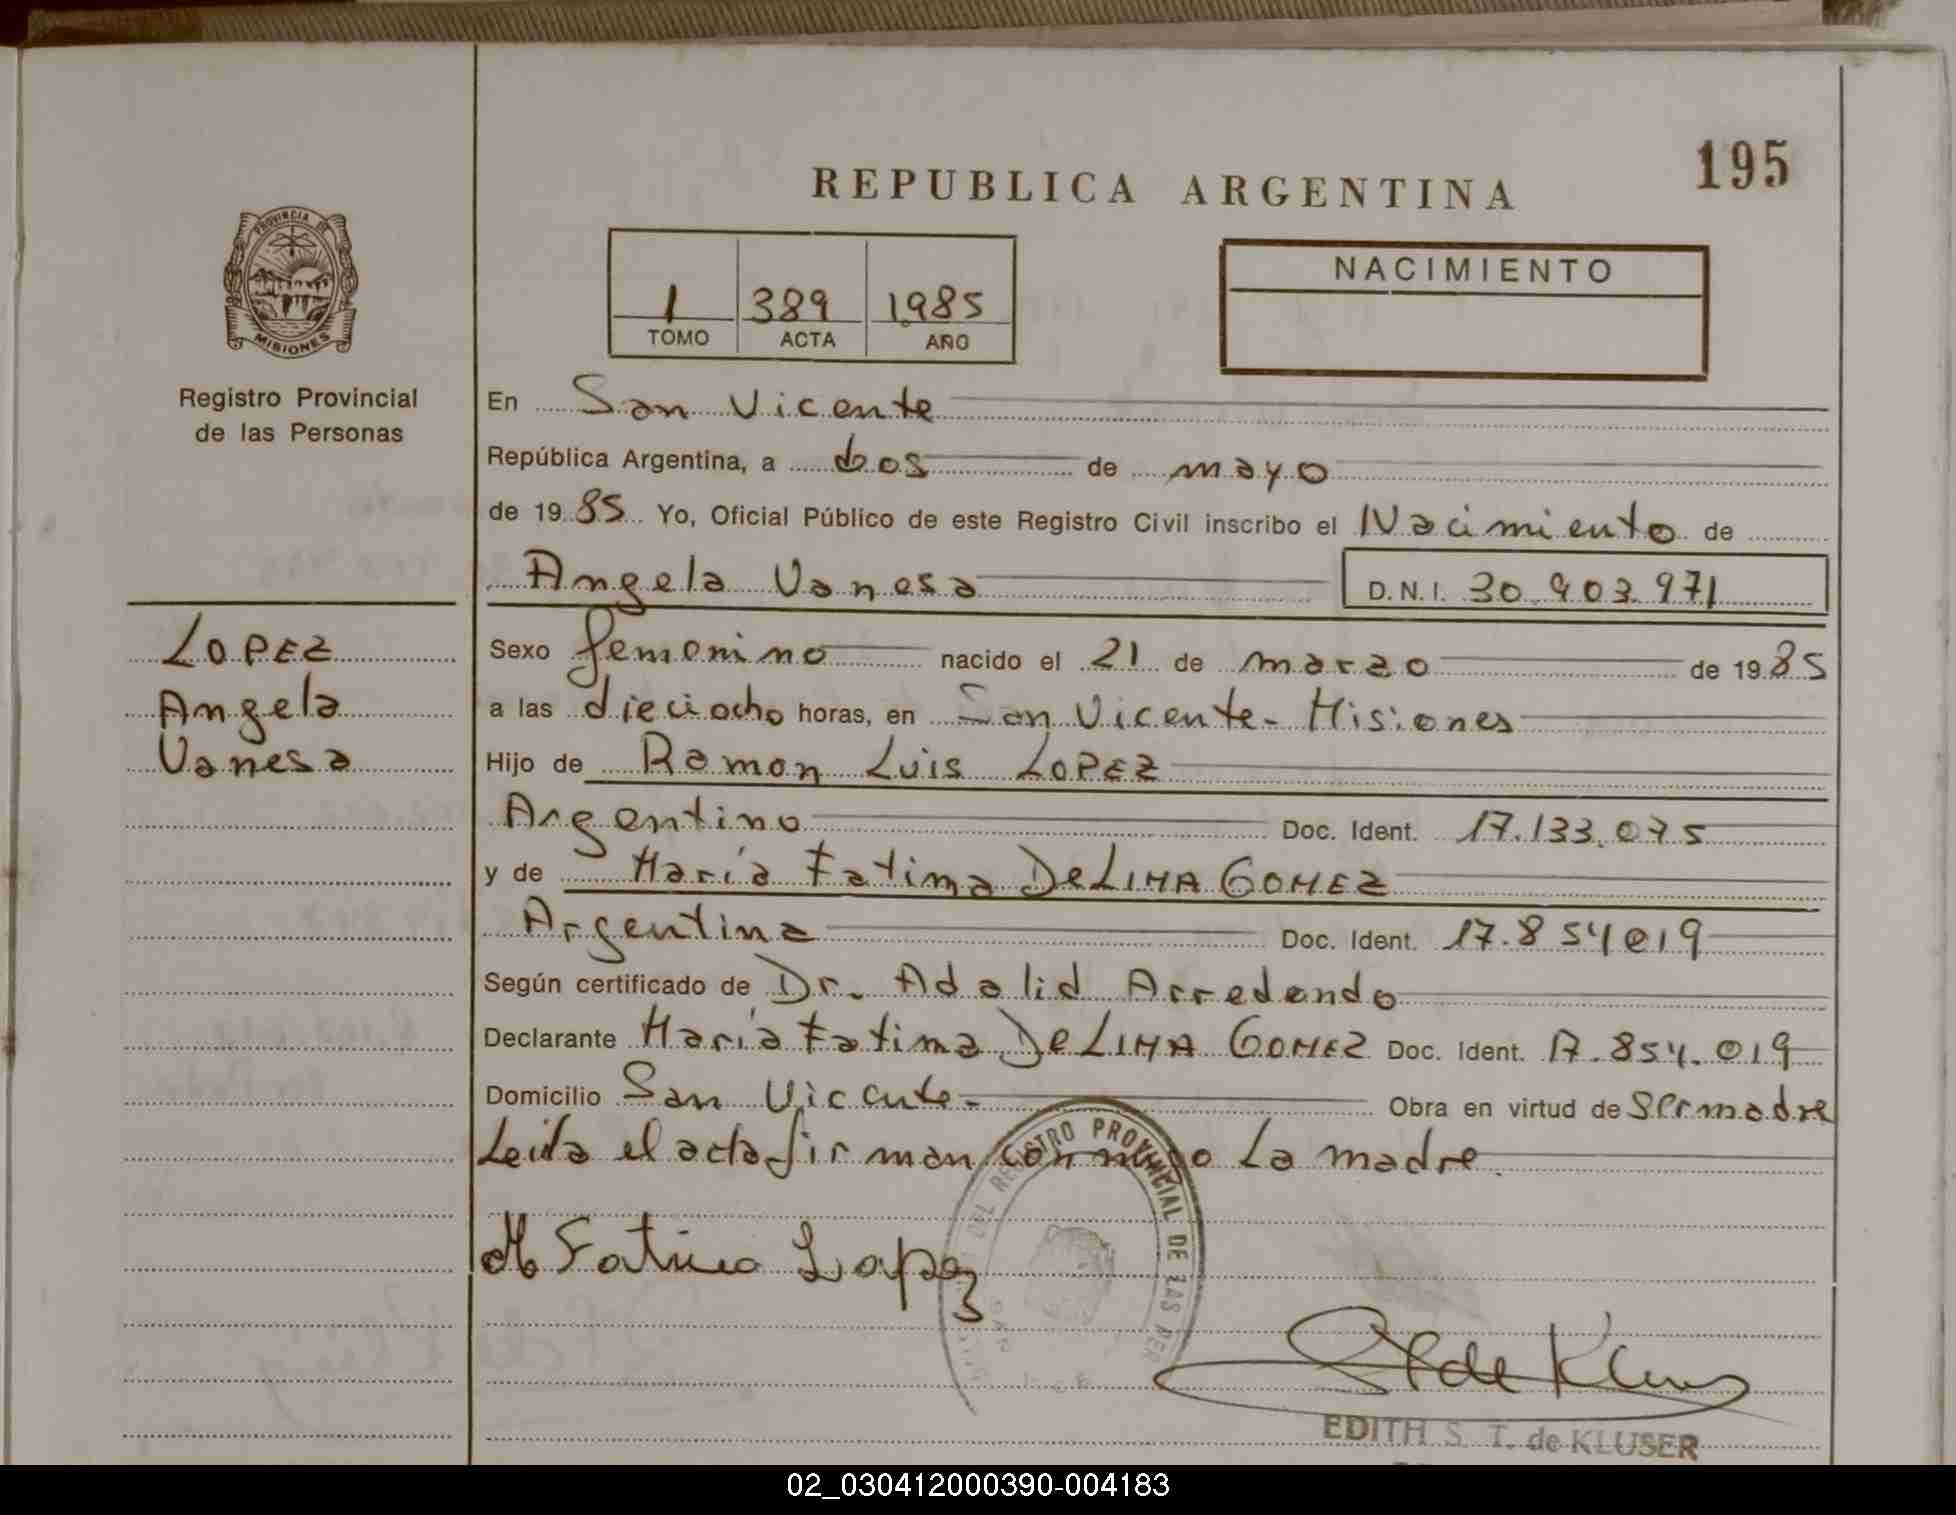 195
REPUBLICA ARGENTINA
PROVINCIA DE
MISIONES
Registro Provincial
de las Personas
1 389 1985
TOMO ACTA AÑO
NACIMIENTO
En San Vicente
República Argentina, a dos de mayo
de 1985 Yo, Oficial Público de este Registro Civil inscribo el Nacimiento de
Angela Vanesa D.N.I. 30.903.971
LOPEZ
Angela
Vanesa
Sexo femenino nacido el 21 de marzo de 1985
a las dieciocho horas, en San Vicente - Misiones
Hijo de Ramon Luis LOPEZ
Argentino Doc. Ident. 17.133.075
y de María Fatima DE LIMA GOMEZ
Argentina Doc. Ident. 17.854019
Según certificado de Dr. Adalid Arredondo
Declarante María Fatima DE LIMA GOMEZ Doc. Ident. 17.854.019
Domicilio San Vicente - Obra en virtud de ser madre
Leida el acta firman conmigo La madre.
REGISTRO PROVINCIAL DE LAS PER
M Fatima Lopez
EDITH S. T. de KLUSER
02_030412000390-004183